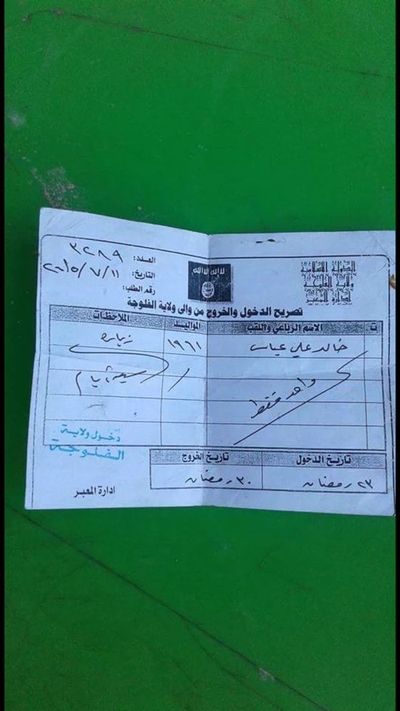 العدد: ٣٢٨٩
التاريخ: ٢٠١٥/٧/١١
رقم الطلب:
لا إله إلا الله
الدولة الإسلامية
تصريح الدخول والخروج من والى ولاية الفلوجة
ت الاسم الرباعي واللقب المواليد الملاحظات
خالد علي عباس ١٩٦١ زيارة
واحد فقط سبعة أيام
دخول ولاية
الفلوجة
تاريخ الدخول تاريخ الخروج
٢٣ رمضان ٣٠ رمضان
ادارة المعبر